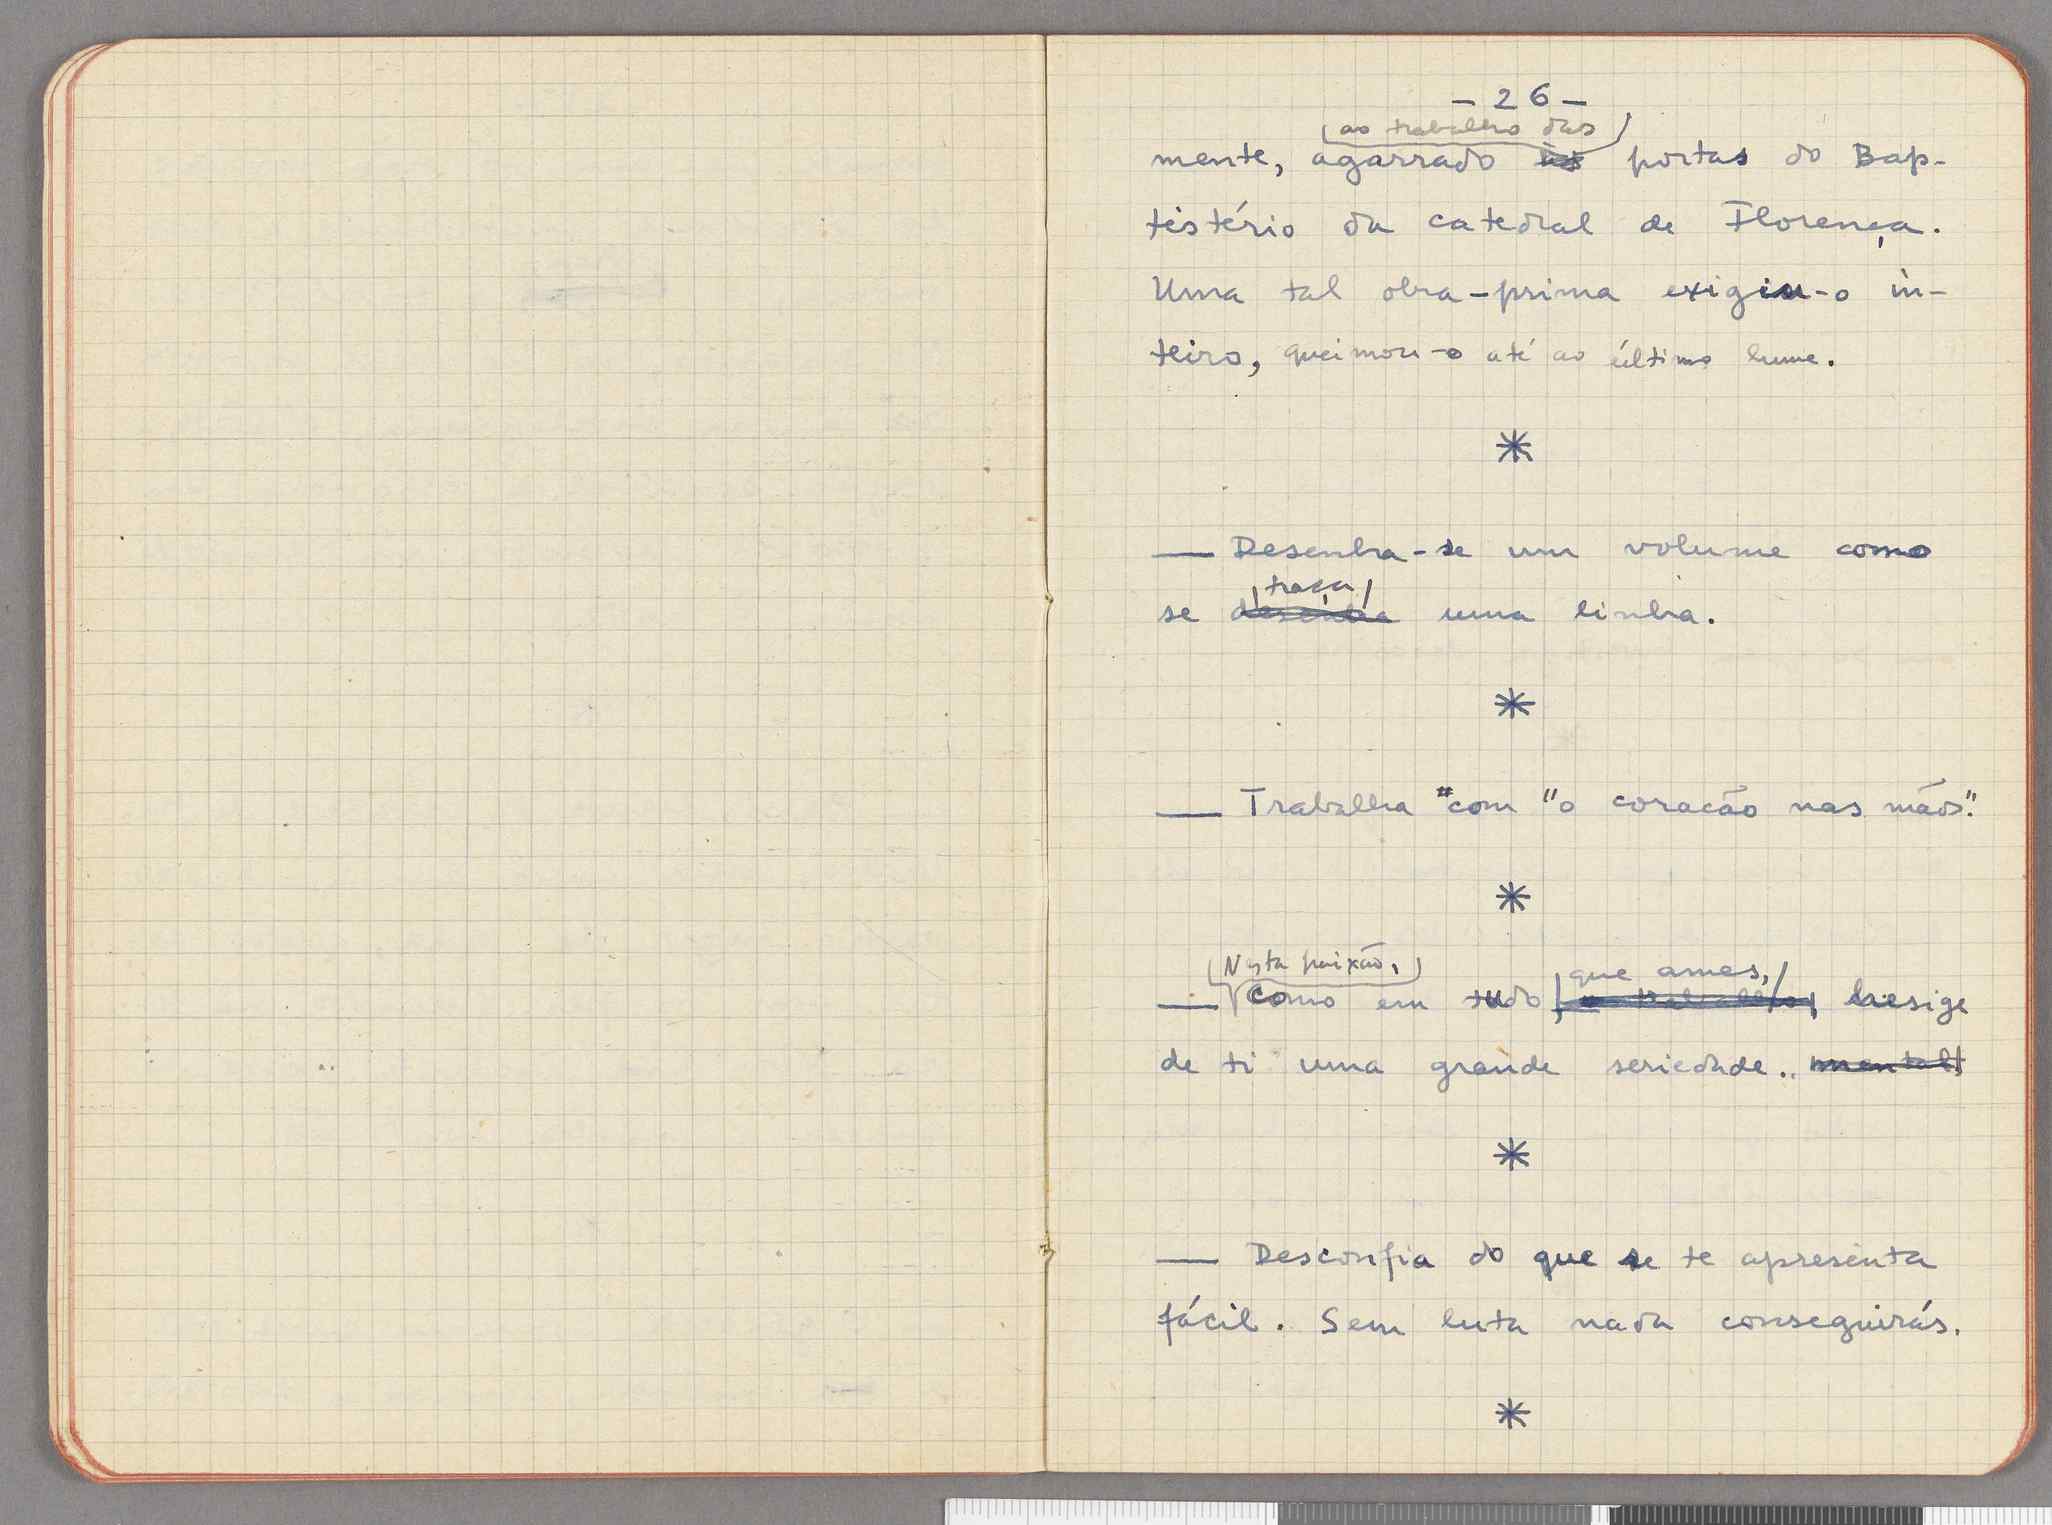 - 26 -
ao trabalho das
mente, agarrado às portas do Bap-
tistério da catedral de Florença.
Uma tal obra-prima exigiu-o in-
teiro, queimou-o até ao último lume.
*
— Desenha-se um volume como
traça
se desenha uma linha.
*
— Trabalha "com "o coracão nas mãos".
*
Nesta paixão, que ames,
— Como em tudo, o trabalho,
de ti uma grande seriedade.. mental
*
— Desconfia do que se te apresenta
fácil. Sem luta nada conseguirás.
*